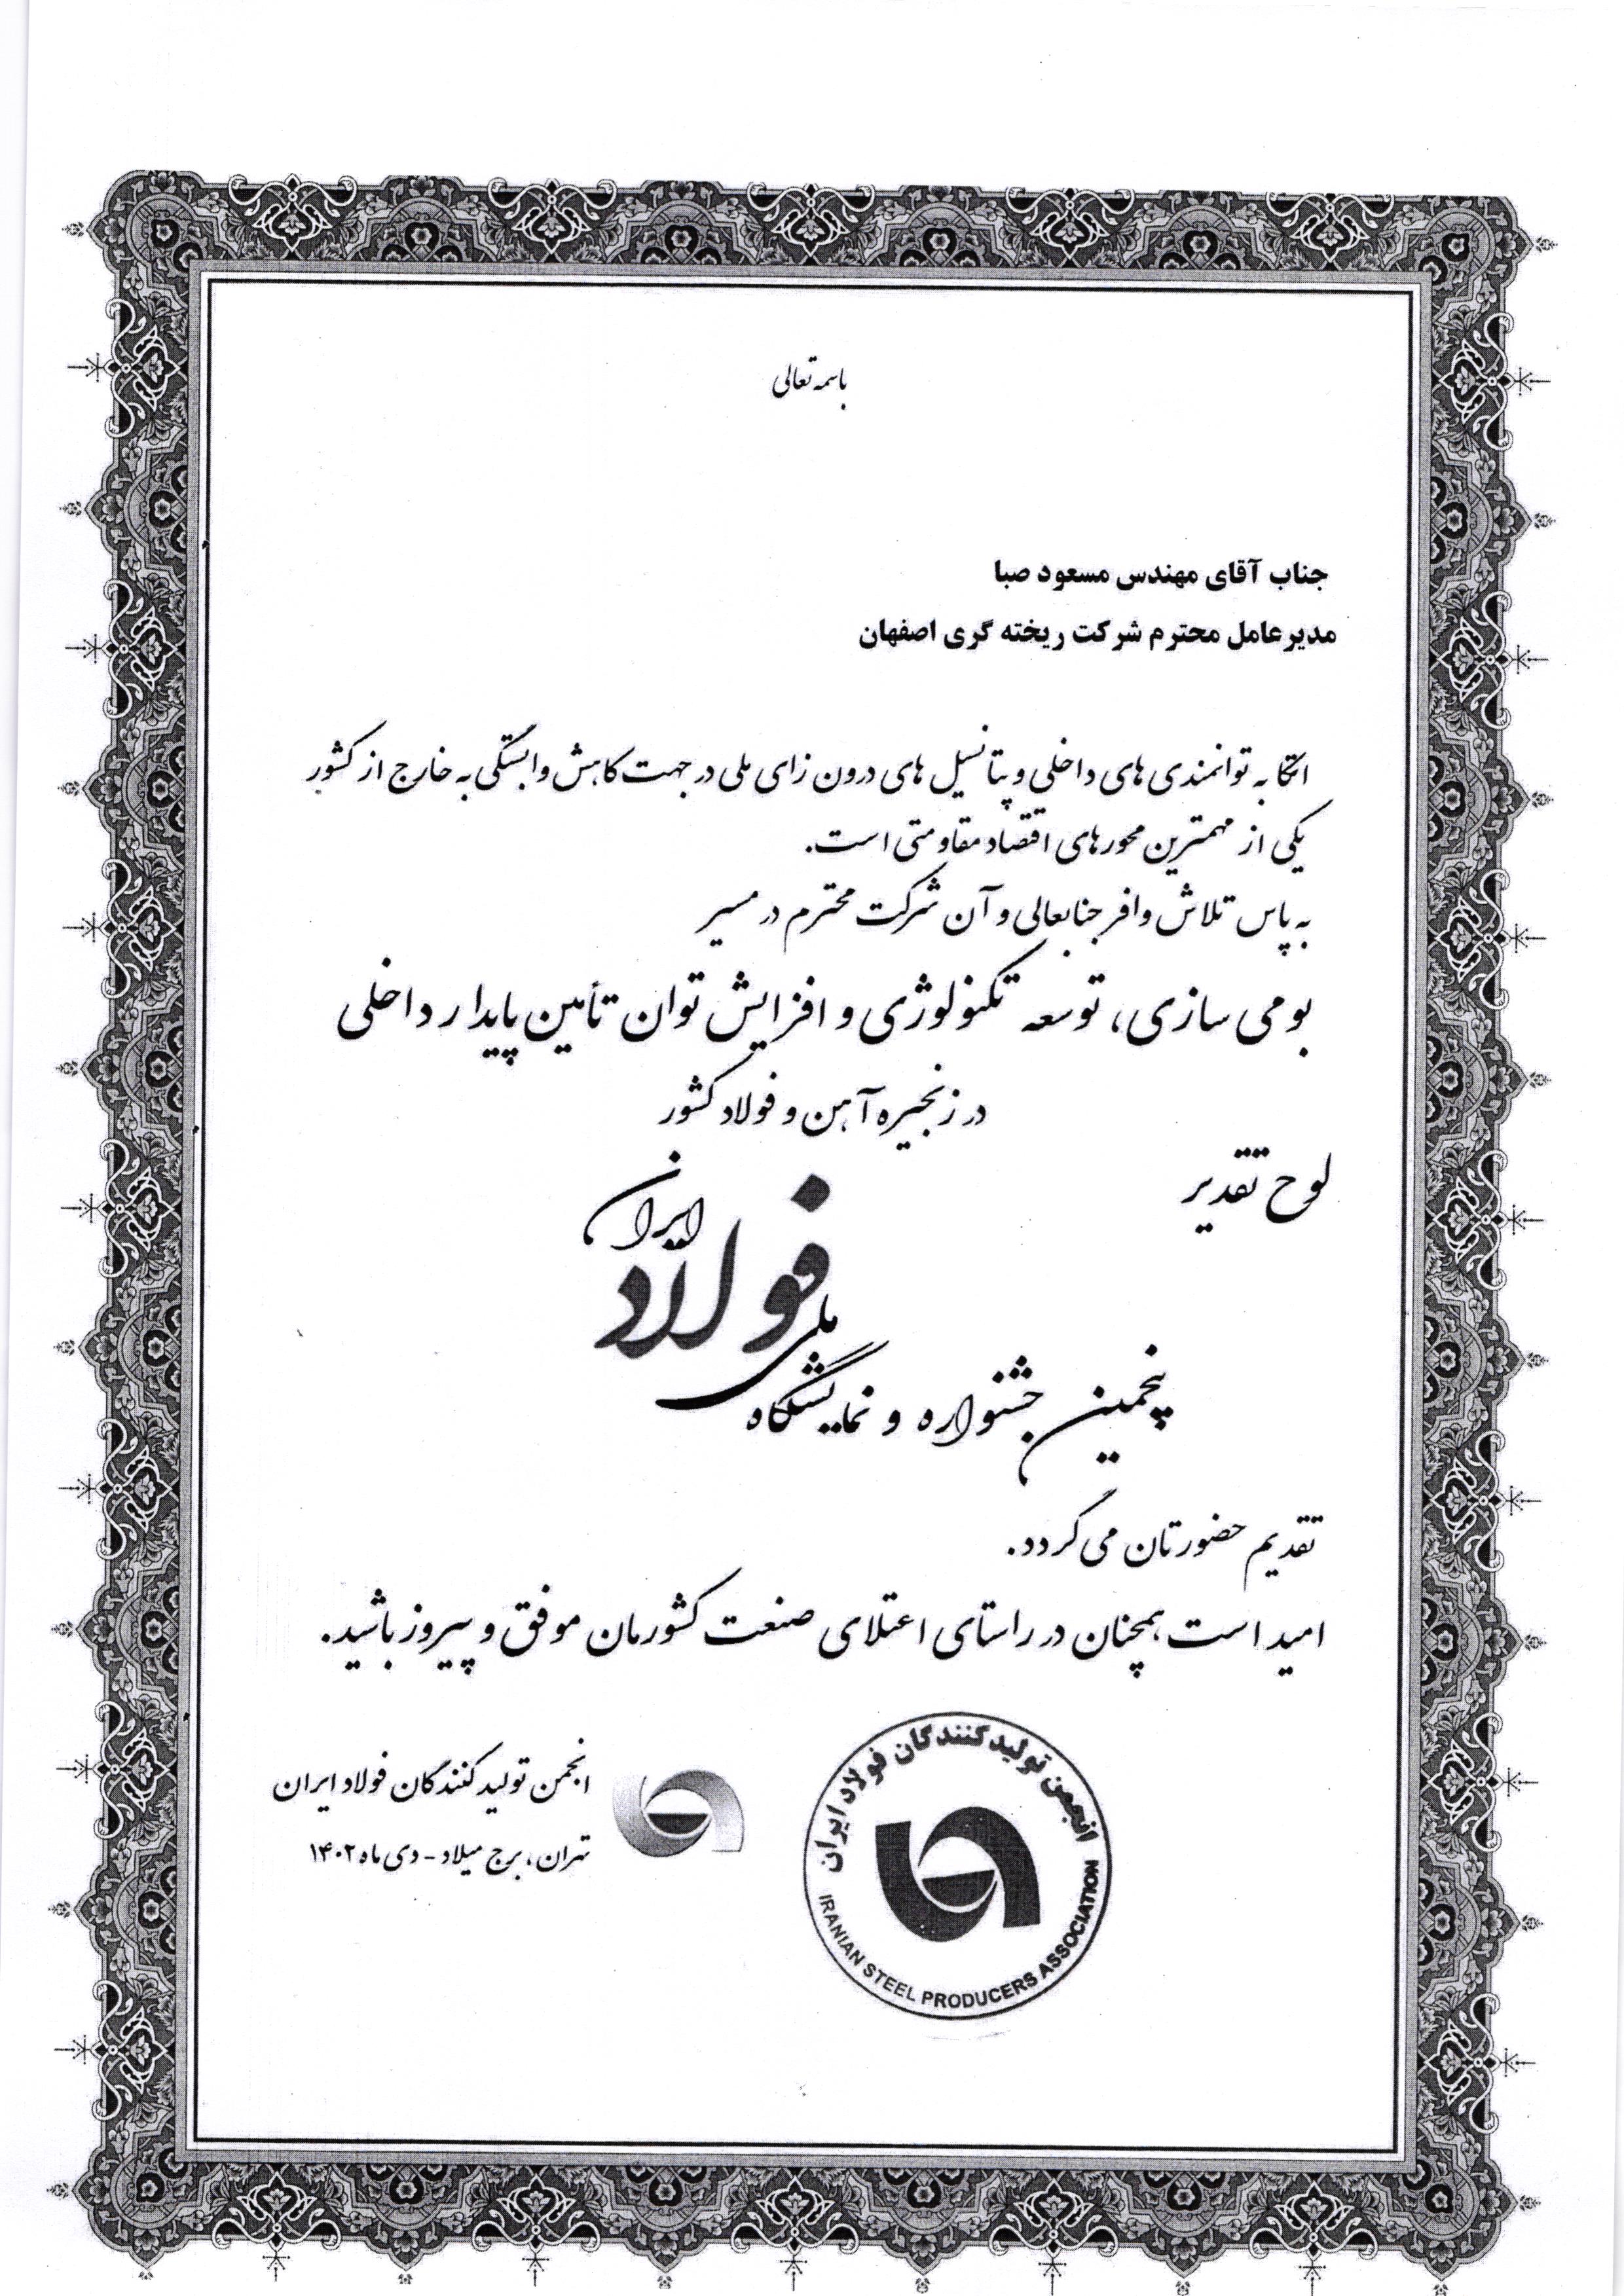 باسمه تعالی
جناب آقای مهندس مسعود صبا
مدیرعامل محترم شرکت ریخته گری اصفهان
اتکا به توانمندی های داخلی و پتانسیل های درون زای ملی در جهت کاهش وابستگی به خارج از کشور
یکی از مهمترین محورهای اقتصاد مقاومتی است.
به پاس تلاش وافر جنابعالی و آن شرکت محترم در مسیر
بومی سازی، توسعه تکنولوژی و افزایش توان تأمین پایدار داخلی
در زنجیره آهن و فولاد کشور
لوح تقدیر
پنجمین جشنواره و نمایشگاه ملی فولاد ایران
تقدیم حضورتان می گردد.
امید است همچنان در راستای اعتلای صنعت کشورمان موفق و پیروز باشید.
انجمن تولیدکنندگان فولاد ایران
تهران، برج میلاد - دی ماه ۱۴۰۲
انجمن تولیدکنندگان فولاد ایران
IRANIAN STEEL PRODUCERS ASSOCIATION